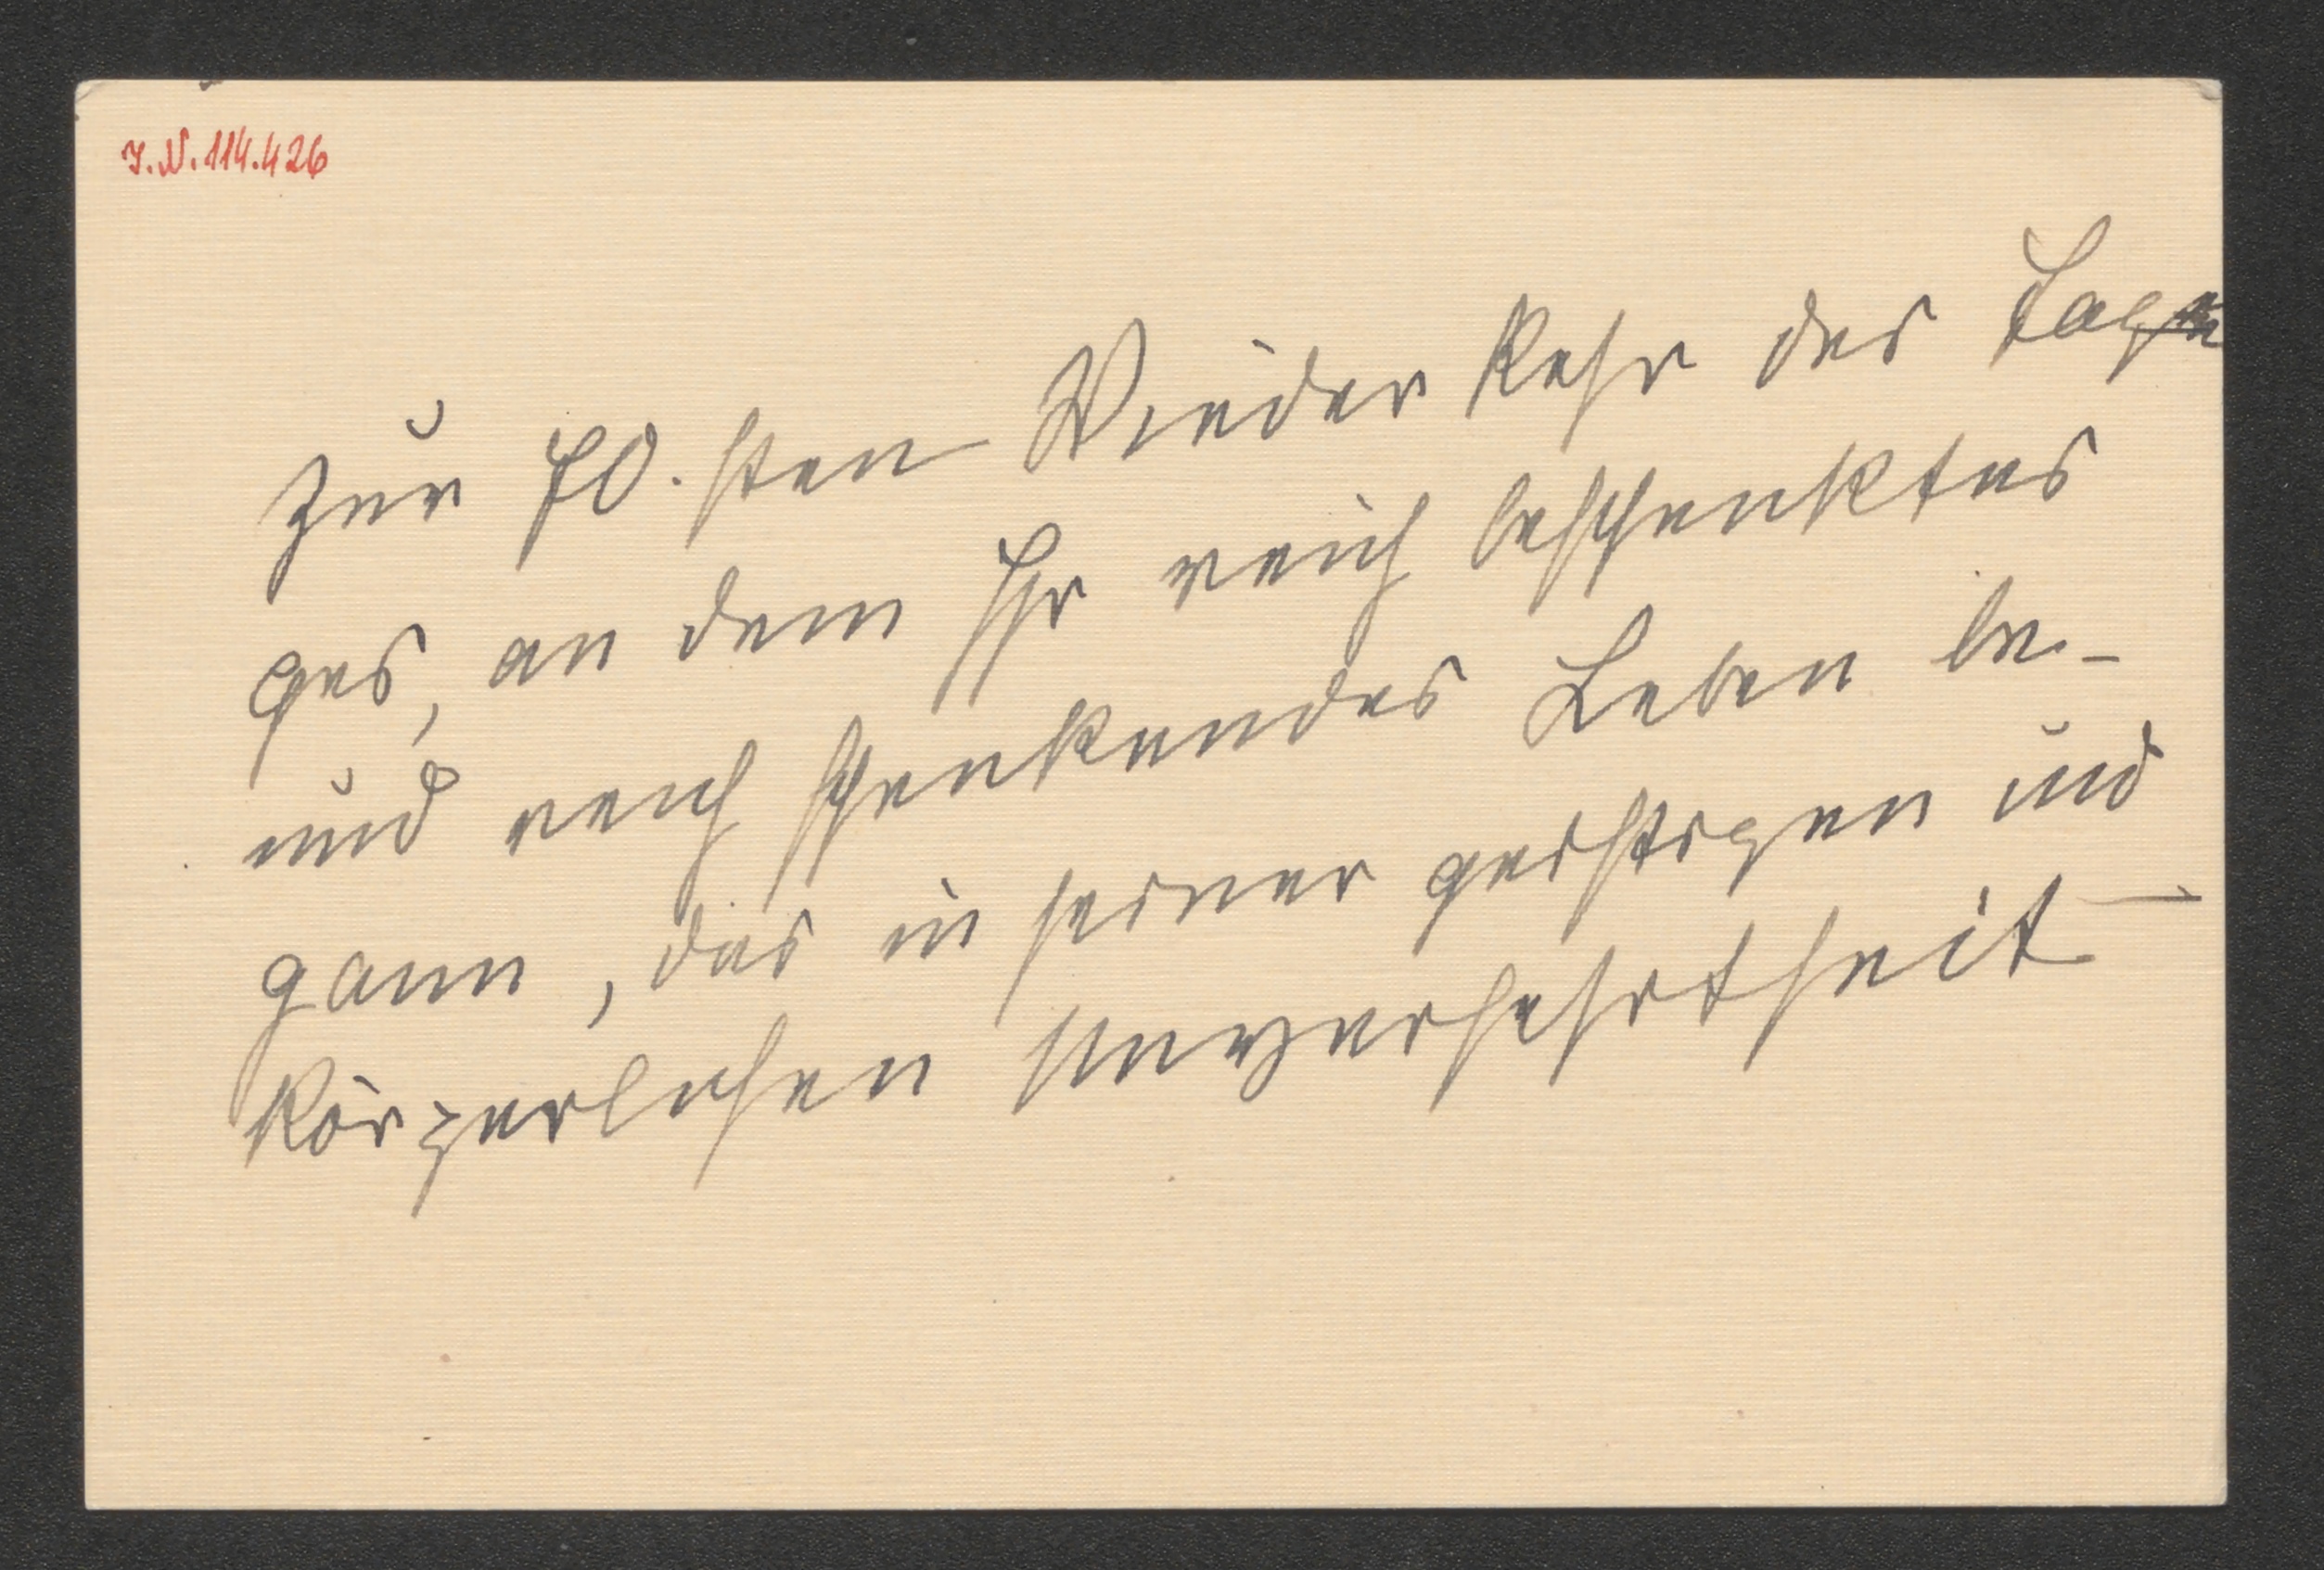 I.N. 114.426
Zur 70.sten Wiederkehr des Ta
ges, an dem Ihr reich beschenktes
und reich schenkendes Leben be-
gann, das in seiner geistigen und
körperlichen Unversehrtheit –